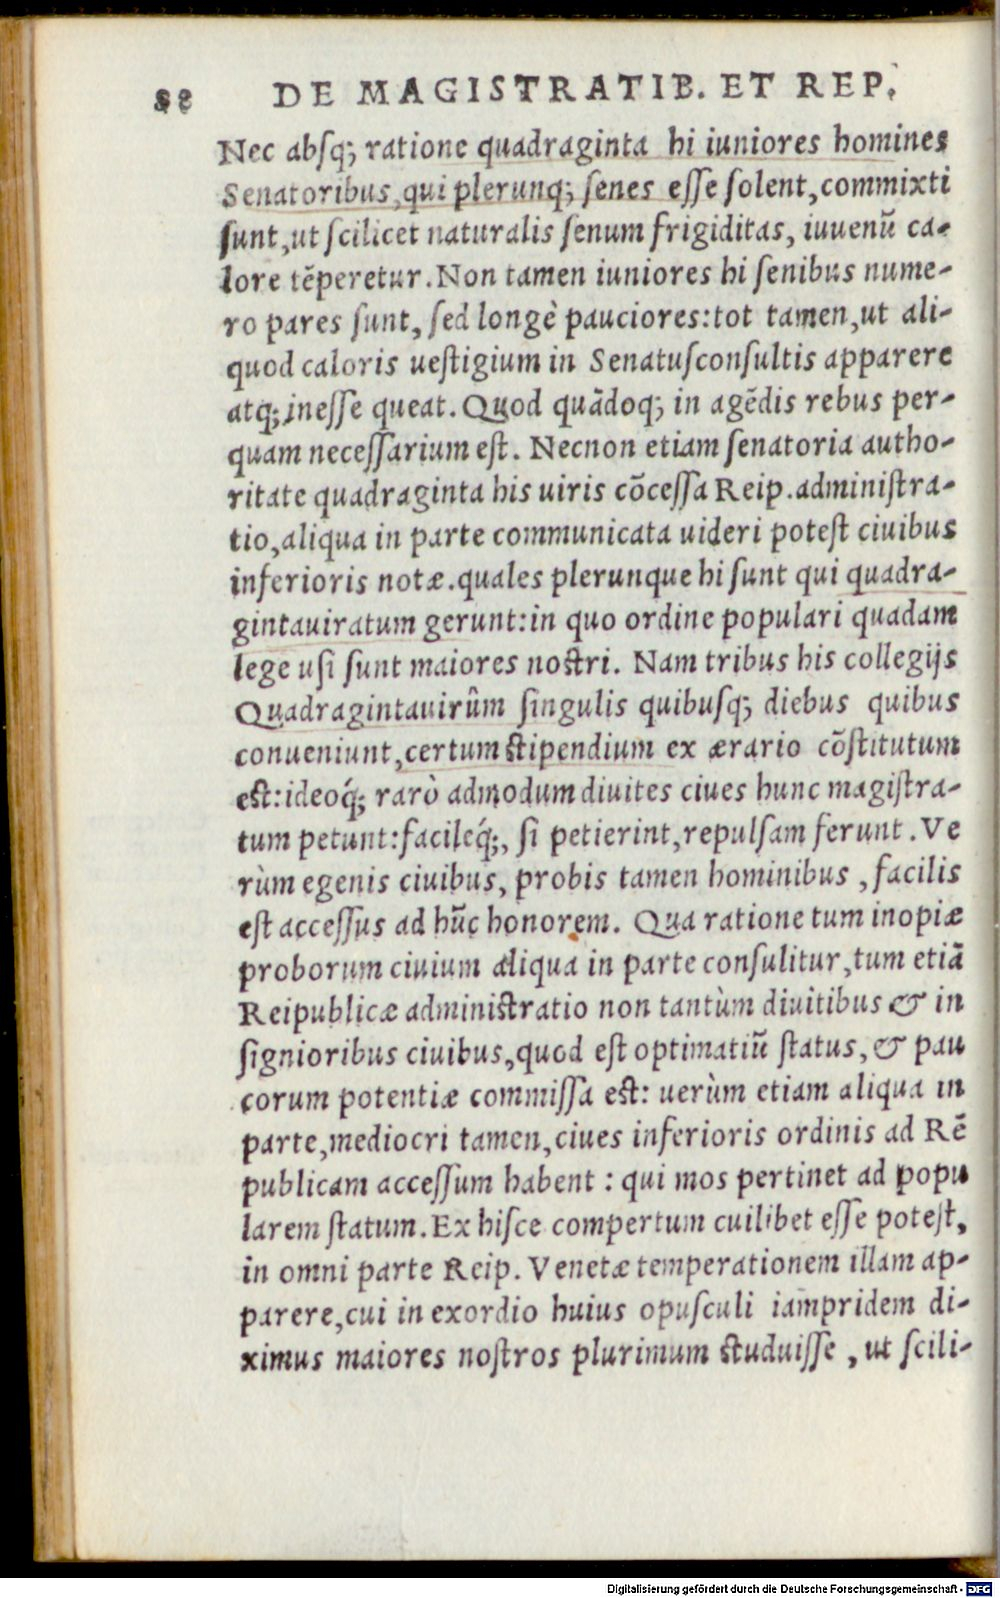 88 DE MAGISTRATIB. ET REP.
Nec absq; ratione quadraginta hi iuniores homines
Senatoribus, qui plerunq; senes esse solent, commixti
sunt, ut scilicet naturalis senum frigiditas, iuuenū ca-
lore tēperetur. Non tamen iuniores hi senibus nume-
ro pares sunt, sed longè pauciores: tot tamen, ut ali-
quod caloris uestigium in Senatusconsultis apparere
atq; inesse queat. Quod quādoq; in agēdis rebus per-
quam necessarium est. Necnon etiam senatoria autho-
ritate quadraginta his uiris cōcessa Reip. administra-
tio, aliqua in parte communicata uideri potest ciuibus
inferioris notæ. quales plerunque hi sunt qui quadra-
gintauiratum gerunt: in quo ordine populari quadam
lege usi sunt maiores nostri. Nam tribus his collegijs
Quadragintauirûm singulis quibusq; diebus quibus
conueniunt, certum stipendium ex ærario cōstitutum
est: ideoq́; rarò admodum diuites ciues hunc magistra-
tum petunt: facileq́;, si petierint, repulsam ferunt. Ve
rùm egenis ciuibus, probis tamen hominibus, facilis
est accessus ad hūc honorem. Qua ratione tum inopiæ
proborum ciuium aliqua in parte consulitur, tum etiā
Reipublicæ administratio non tantùm diuitibus & in
signioribus ciuibus, quod est optimatiū status, & pau
corum potentiæ commissa est: uerùm etiam aliqua in
parte, mediocri tamen, ciues inferioris ordinis ad Rē
publicam accessum habent: qui mos pertinet ad popu
larem statum. Ex hisce compertum cuilibet esse potest,
in omni parte Reip. Venetæ temperationem illam ap-
parere, cui in exordio huius opusculi iampridem di-
ximus maiores nostros plurimum studuisse, ut scili-
Digitalisierung gefördert durch die Deutsche Forschungsgemeinschaft - DFG